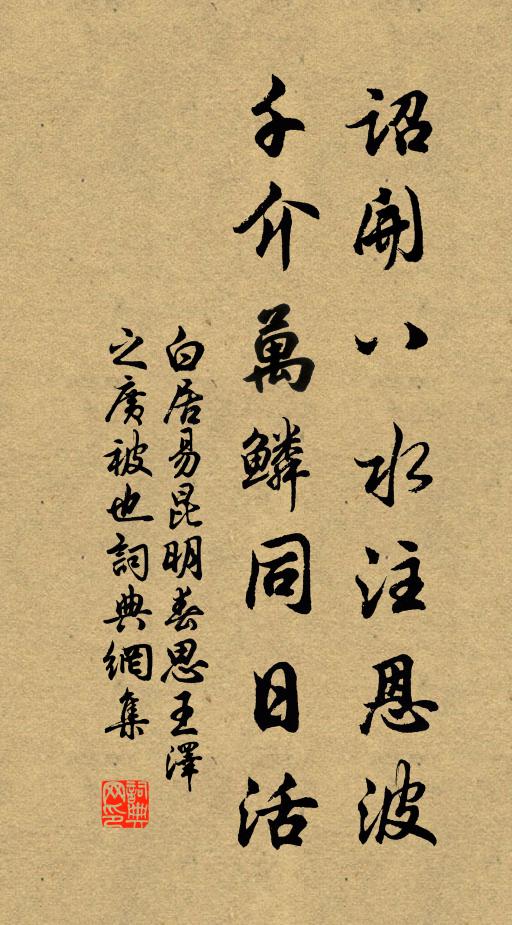 詔開八水注恩波
千介萬鱗同日活
白居易昆明春思王澤
之廣被也詞典網集
詞典
网印